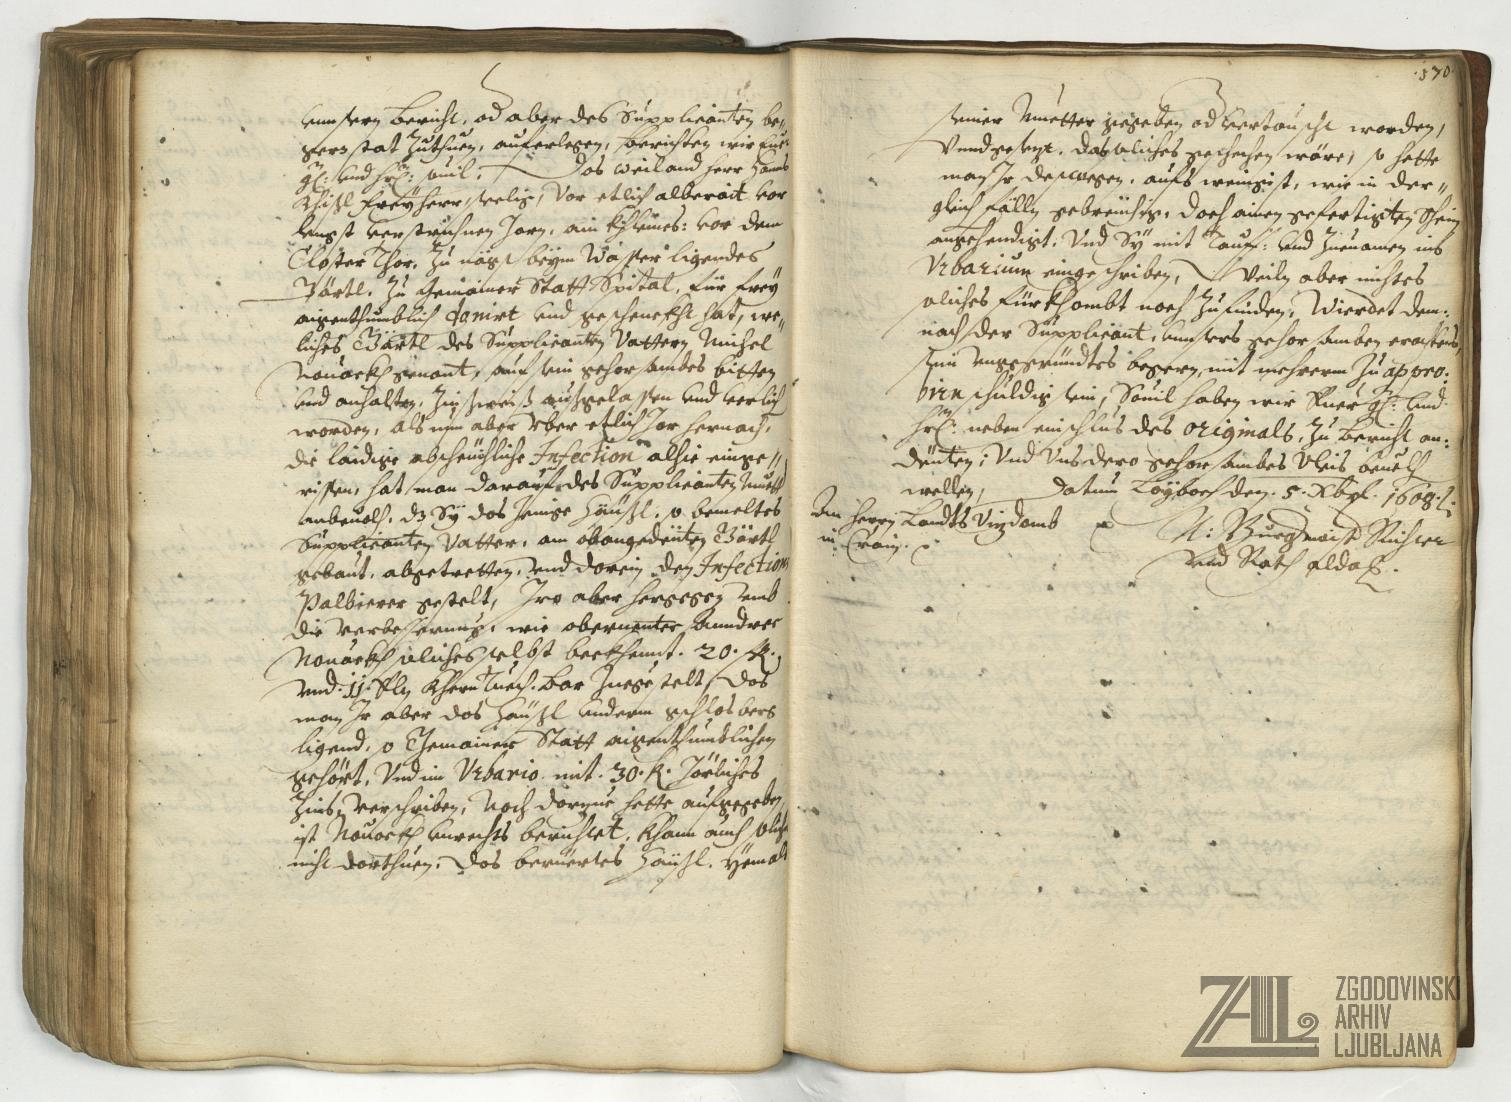 unnsern Bericht, od aber des Supplicanten be„
gern stat Zuthuen, auferlegen, berichten wir Euer
gl: und hrl: souil, Das weiland Herr Hanns
Khißl Freyherr, seelig, Vor etlich alberait vor
lengst verstrichnen Jarn, ain khleines: vor dem
Closter Thor, Zu nägst beym Wasser ligendes
Pärtl, Zu Gemainer Statt Spital, für frey
aigenthumblich donirt und geschenckht hat, we„
liches Gärtl des Supplicanten Vattern Michel
Nouackh genant, auf sein gehorsambes bitten
und anhalten, Zinßweiß außgelassen und verlich
worden, als nun aber Vber etlich Jar hernach,
die laidige abscheuchliche Infection alhie einge„
rissen, hat man darauf des Supplicanten Muetter
anbeuolh, dz Sy das jenige Häußl, so bemeltes
Supplicanten Vatter, am obangedeuten Gärtl
gebaut, abgetretten, und darein den Infection
Palbierer gestelt, Jro aber hergegen umb
die verbesserung, wie obernenter Anndree
Nouackh soliches selbst bekhennt, 20. fl.
und 11. Eln Khern Tuech, bar Zuegestelt, Das
man Jr aber das Häußl underm Schlosberg
ligend, so Gemainer Statt aigenthumblichen
gehört, Vnd im Vrbario mit 30. k. Järliches
Zinß verschriben, noch darzue hette aufgegeben
ist Nouackh unrechts berichtet, khann auch solches
nicht darthuen, Das beruertes Häußl, yemals
570
seiner Muetter gegeben od vertauscht worden,
Vnndgesezt, das soliches geschechen wäre, so hette
man Jr desswegen, aufs wenigist, wie in der„
gleich Fälln gebreuchig, doch ainen gefertigten Schein
angehendigt, Vnd Sy mit Tauff: und Zuenamen ins
Vrbarium eingeschriben, Weiln aber nichtes
soliches fürkhombt noch Zufinden, Wierdet dem:
nach der Supplicant, unsers gehorsamben erachtens,
sein ungegründtes begern, mit mehrerm Zu appro:
birn schuldig sein, Souil haben wir Euer gl: und
hrl: neben einschlus des originals, Zu Bericht an:
deuten, Vnd Vns dero gehorsambes Vleis beuelh
wellen, Datum Laybach den 5. Xbr. 1608.
An Herrn Landts Vizdomb
in Crain.
N: Burgermaister Richter
und Rath alda.
ZAL
ZGODOVINSKI
ARHIV
LJUBLJANA